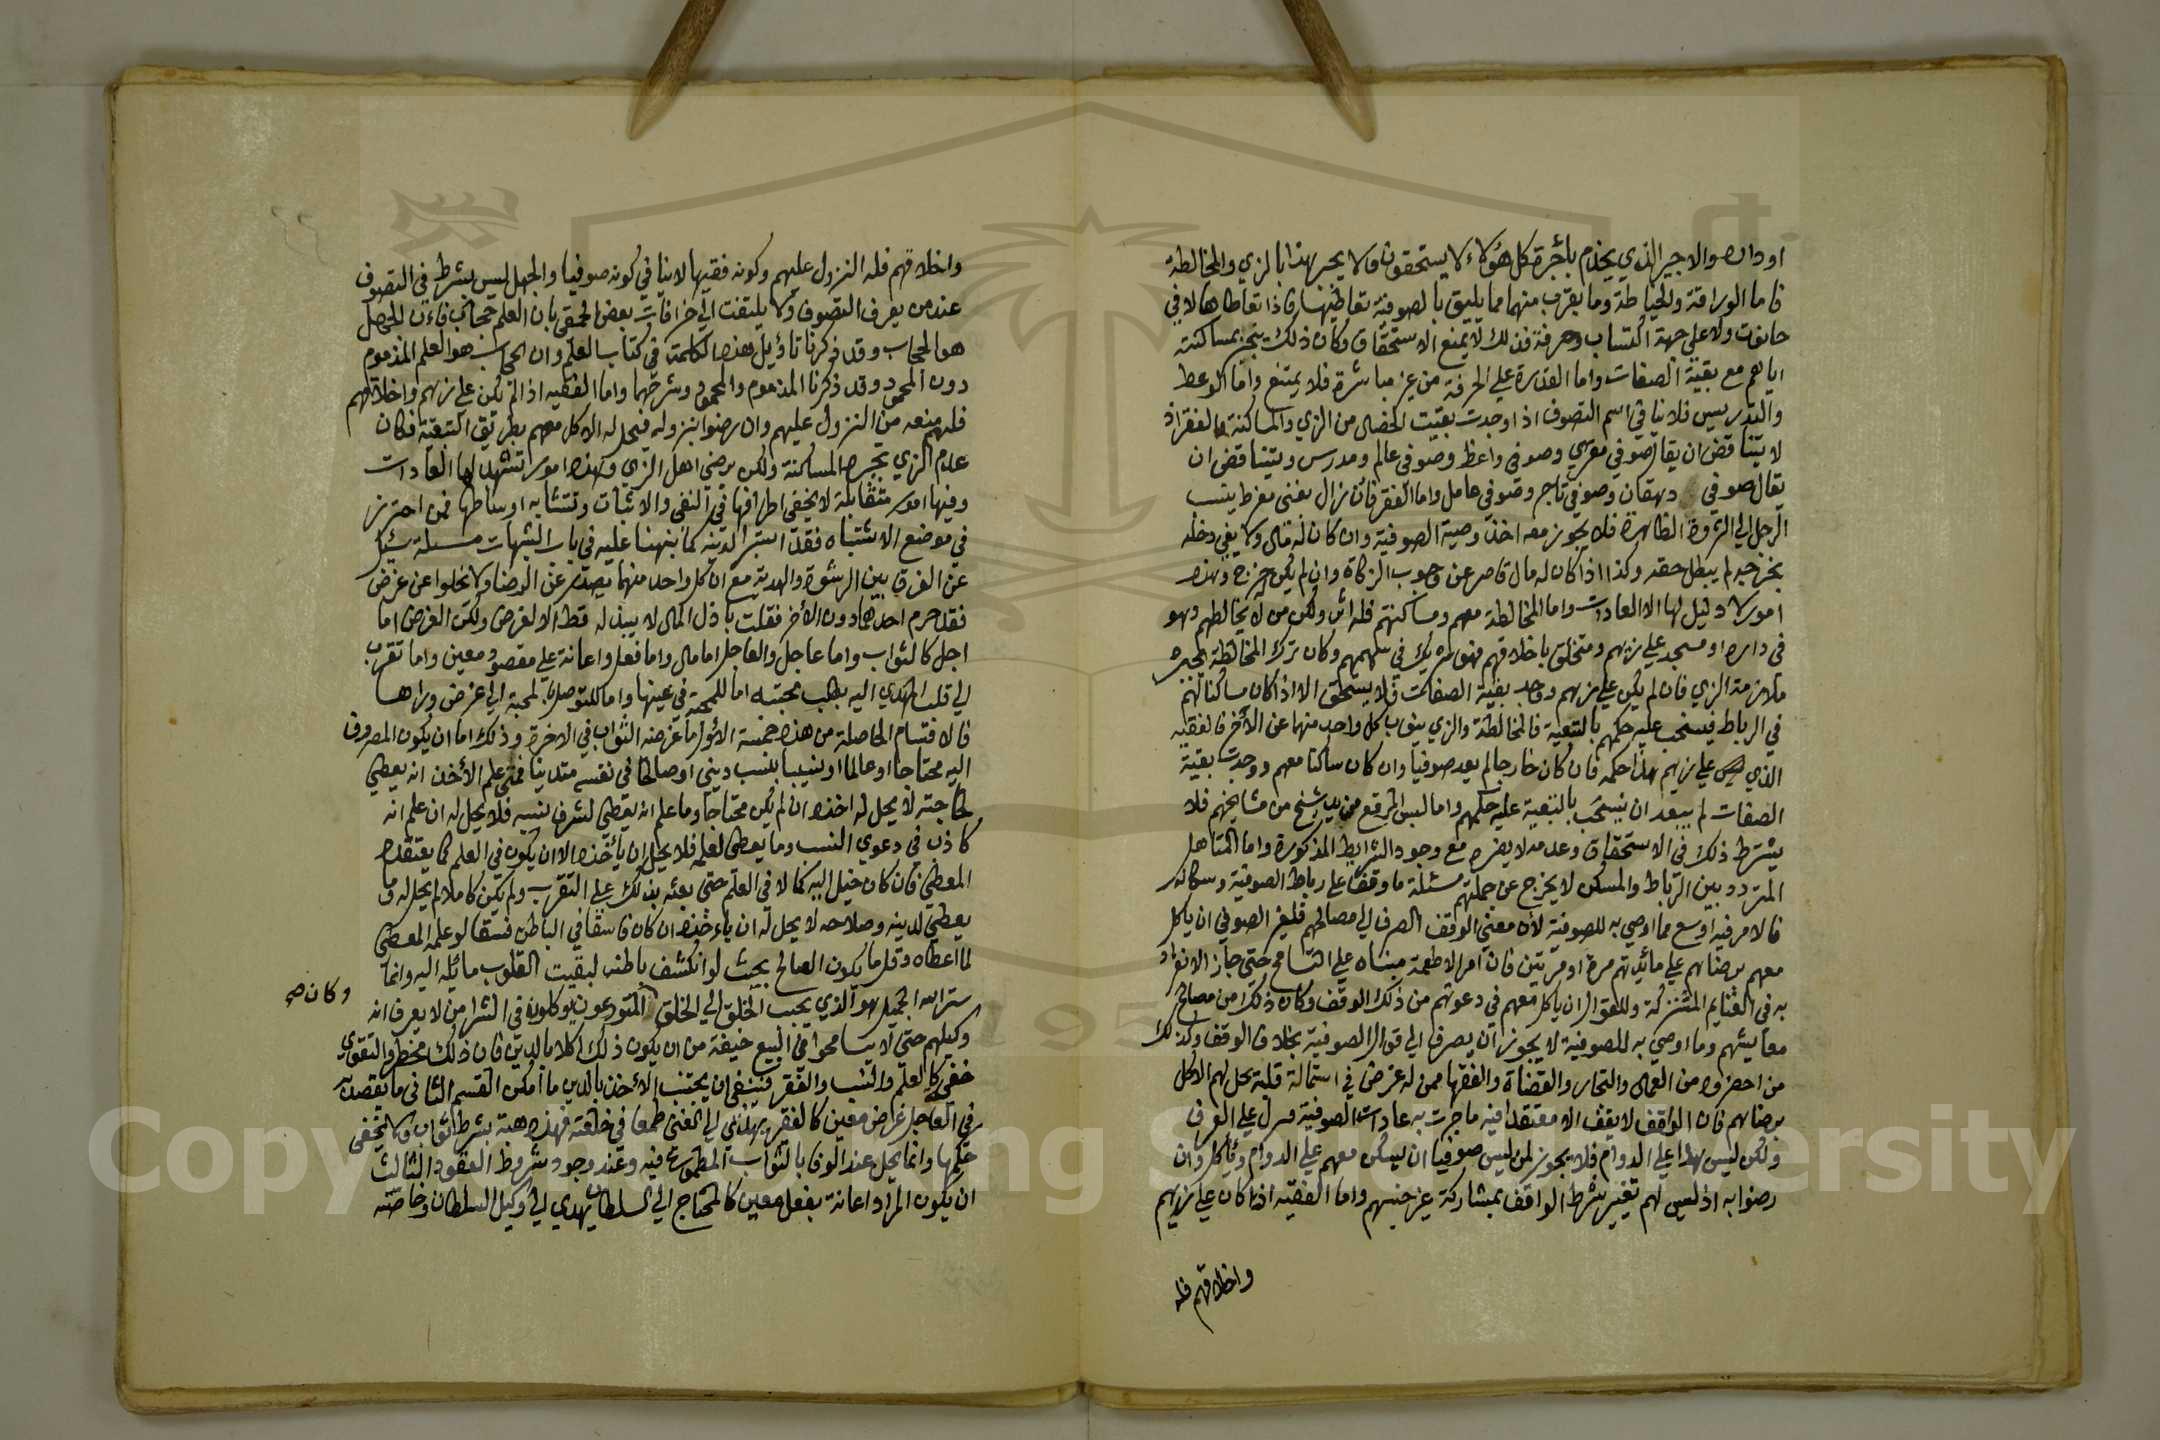 او داره والاجير الذي يخدم باجرة كل هؤلاء لا يستحقون ولا يجبر هذا بالزي والمخالطة
فاما الوراقة والخياطة وما يقرب منهما مما يليق بالصوفية تعاطيها فاذا تعاطاها لا في
حانوت ولا على جهة اكتساب وحرفة فذلك لا يمنع الاستحقاق وكان ذلك ينجبر بمساكنته
اياهم مع بقية الصفات واما القدرة على الحرفة من غير مباشرة فلا يمنع واما الوعظ
والتدريس فلا ينافي اسم التصوف اذا وجدت بقيت الخصال من الزي والمساكنة والفقر اذ
لا يتناقض ان يقال صوفي مقري وصوفي واعظ وصوفي عالم ومدرس ويتناقض ان
يقال صوفي دهقان وصوفي تاجر وصوفي عامل واما الفقر فان زال بغنى مفرط ينسب
الرجل الي الثروة الظاهرة فلا يجوز معه اخذ وصية الصوفية وان كان له مال ولا يفي دخله
بخرجه لم يبطل حقه وكذا اذا كان له مال قاصر عن وجوب الزكاة وان لم يكن خرج وهذه
امور لا دليل لها الا العادات واما المخالطة معهم ومساكنتهم فله اثر ولكن من لا يخالطهم وهو
في داره او مسجد على زيهم ومتخلق باخلاقهم فهو شريك في سهمهم وكان ترك المخالطة يجبره
ملازمة الزي فان لم يكن على زيهم ووجد بقية الصفات فلا يستحق الا اذا كان مساكنا لهم
في الرباط فينسحب عليه حكمهم بالتبعية فالمخالطة والزي ينوب كل واحد منهما عن الآخر فالفقيه
الذي ليس على زيهم هذا حكمه فان كان خارجا لم يعد صوفيا وان كان ساكنا معهم ووجدت بقية
الصفات لم يبعد ان ينسحب بالتبعية عليه حكمهم واما لبس المرقع من يد شيخ من مشايخهم فلا
يشترط ذلك في الاستحقاق وعدمه لا يضره مع وجود الشرايط المذكورة واما المتاهل
المتردد بين الرباط والمسكن لا يخرج عن جملتهم مسئلة ما وقف على رباط الصوفية وسكانه
فالامر فيه اوسع مما اوصي به للصوفية لان معنى الوقف الصرف الي مصالحهم فلغير الصوفي ان ياكل
معهم برضاهم على مائدتهم مرة او مرتين فان امر الاطعمة مبناه على التسامح حتى جاز الانفراد
به في الغنايم المشتركة وللقوال ان ياكل معهم في دعوتهم من ذلك الوقف وكان ذلك من مصالح
معايشهم وما اوصي به للصوفية لا يجوز ان يصرف الي قوال الصوفية بخلاف الوقف وكذلك
من احضروه من العمال والتجار والقضاة والفقها ممن له غرض في استمالة قلبه يحل لهم الاكل
برضاهم فان الواقف لا يقف الا معتقدا فيه ما جرت به عادات الصوفية فينزل على العرف
ولكن ليس هذا على الدوام فلا يجوز لمن ليس صوفيا ان يسكن معهم على الدوام وياكل وان
رضوا به اذ ليس لهم تغيير شرط الواقف بمشاركة غير جنسهم واما الفقيه اذا كان على زيهم
واخلاقهم فله
واخلاقهم فله النزول عليهم وكونه فقيها لا ينافي كونه صوفيا والجهل ليس بشرط في التصوف
عند من يعرف التصوف ولا يلتفت الي خرافات بعض الحمقى بان العلم حجاب فان الجهل
هو الحجاب وقد ذكرنا تاويل هذه الكلمة في كتاب العلم وان الحجاب هو العلم المذموم
دون المحمود وقد ذكرنا المذموم والمحمود وشرحهما واما الفقيه اذا لم يكن على زيهم واخلاقهم
فلهم منعه من النزول عليهم وان رضوا بنزوله فيحل له الاكل معهم بطريق التبعية فكان
عدم الزي يجبره المساكنة ولكن برضي اهل الزي وهذه امور تشهد لها العادات
وفيها امور متقابلة لا يخفى اطرافها في النفي والاثبات وتتشابه اوساطها فمن احترز
في موضع الاشتباه فقد استبرا لدينه كما نبهنا عليه في باب الشبهات مسئلة سئل
عن الفرق بين الرشوة والهدية مع ان كل واحد منهما يصدر عن الرضا ولا يخلوا عن غرض
فقد حرم احدهما دون الآخر فقلت باذل المال لا يبذله قط الا لغرض ولكن الغرض اما
اجل كالثواب واما عاجل والعاجل اما مال واما فعل واعانة على مقصود معين واما تقرب
الي قلب المهدي اليه بطلب محبته اما للمحبة في عينها واما للتوصل بالمحبة الي غرض وراها
فالاقسام الحاصلة من هذه خمسة الاول ما غرضه الثواب في الاخرة وذلك اما ان يكون المصروف
اليه محتاجا او عالما او نسيبا بنسب ديني او صالحا في نفسه متدينا فمتى علم الآخذ انه يعطي
لحاجته لا يحل له اخذه ان لم يكن محتاجا وما علم انه يعطي لشرف نسبه فلا يحل له ان علم انه
كاذب في دعوي النسب وما يعطي لعلمه فلا يحل ان ياخذه الا ان يكون في العلم كما يعتقده
المعطي فان كان خيل اليه كمالا في العلم حتى بعثه بذلك على التقرب ولم يكن كاملا لم يحل له وما
يعطي لدينه وصلاحه لا يحل له ان ياخذه ان كان فاسقا في الباطن فسقا لو علمه المعطي
لما اعطاه وقل ما يكون الصالح بحيث لو انكشف باطنه لبقيت القلوب مائلة اليه وانما
ستر الله الجميل هو الذي يحبب الخلق الي الخلق المتورعون يوكلون في الشرا من لا يعرف انه
وكان صح
وكيلهم حتى لا يتسامحوا في البيع خيفة من ان يكون ذلك اكلا بالدين فان ذلك مخطر والتقوى
خفي كالعلم والنسب والفقر فينبغي ان يجتنب الاخذ بالدين ما امكن القسم الثاني ما يقصد به
في العاجل غرض معين كالفقير يهدي الي الغني طمعا في خلعته فهذه هبة بشرط الثواب ولا يخفى
حكمها وانما يحل عند الوفا بالثواب المطموع فيه وعند وجود شروط العقود الثالث
ان يكون المراد اعانة بفعل معين كالمحتاج الي السلطان يهدي الي وكيل السلطان وخاصته